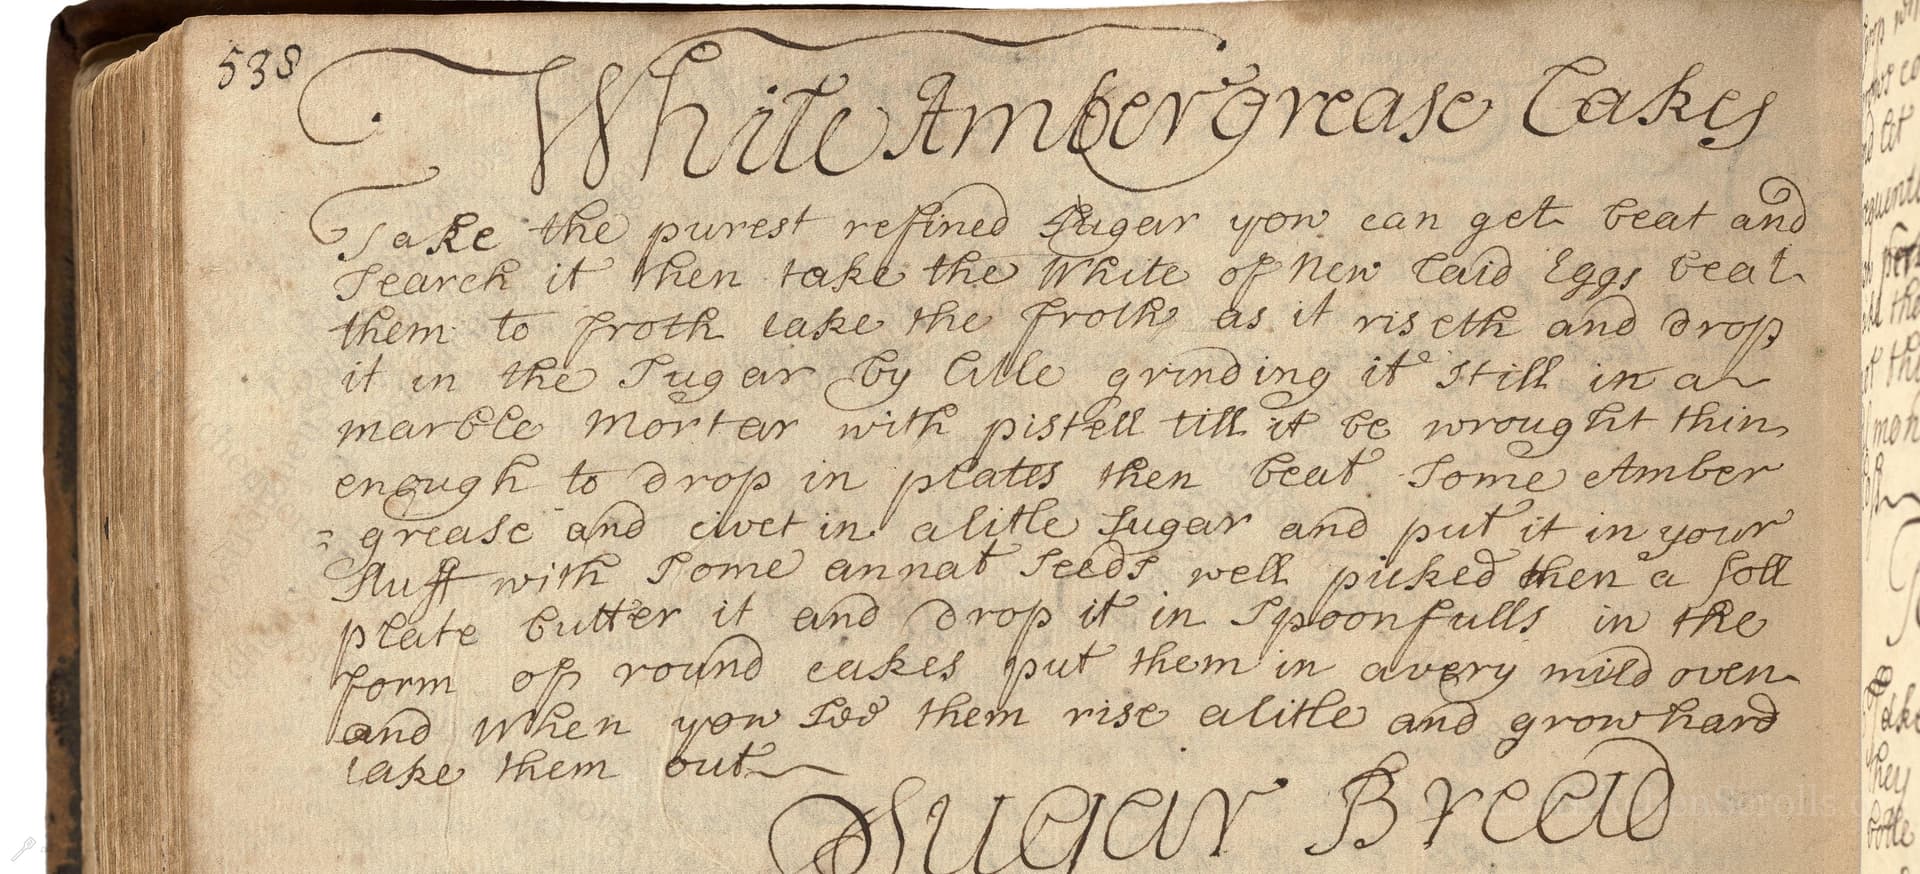 538
White Ambergrease Cakes
Take the purest refined Sugar yow can get beat and
Search it then take the White of New Laid Eggs beat
them to froth take the froth as it riseth and drop
it in the Sugar by litle grinding it still in a
marble mortar with pistell till it be wrought thin
enough to drop in plates then beat Some Amber
= grease and civet in a litle Sugar and put it in your
stuff with Some annat Seeds well picked then a
plate butter it and drop it in Spoonfulls in the
form of round cakes put them in a very mild oven
and When yow See them rise a litle and grow hard
take them out
Sugar Bread